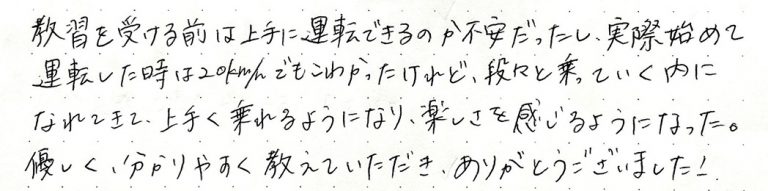 教習を受ける前は上手に運転できるのか不安だったし、実際始めて
運転した時は20km/hでもこわかったけれど、段々と乗っていく内に
なれてきて、上手く乗れるようになり、楽しさを感じるようになった。
優しく、分かりやすく教えていただき、ありがとうございました！